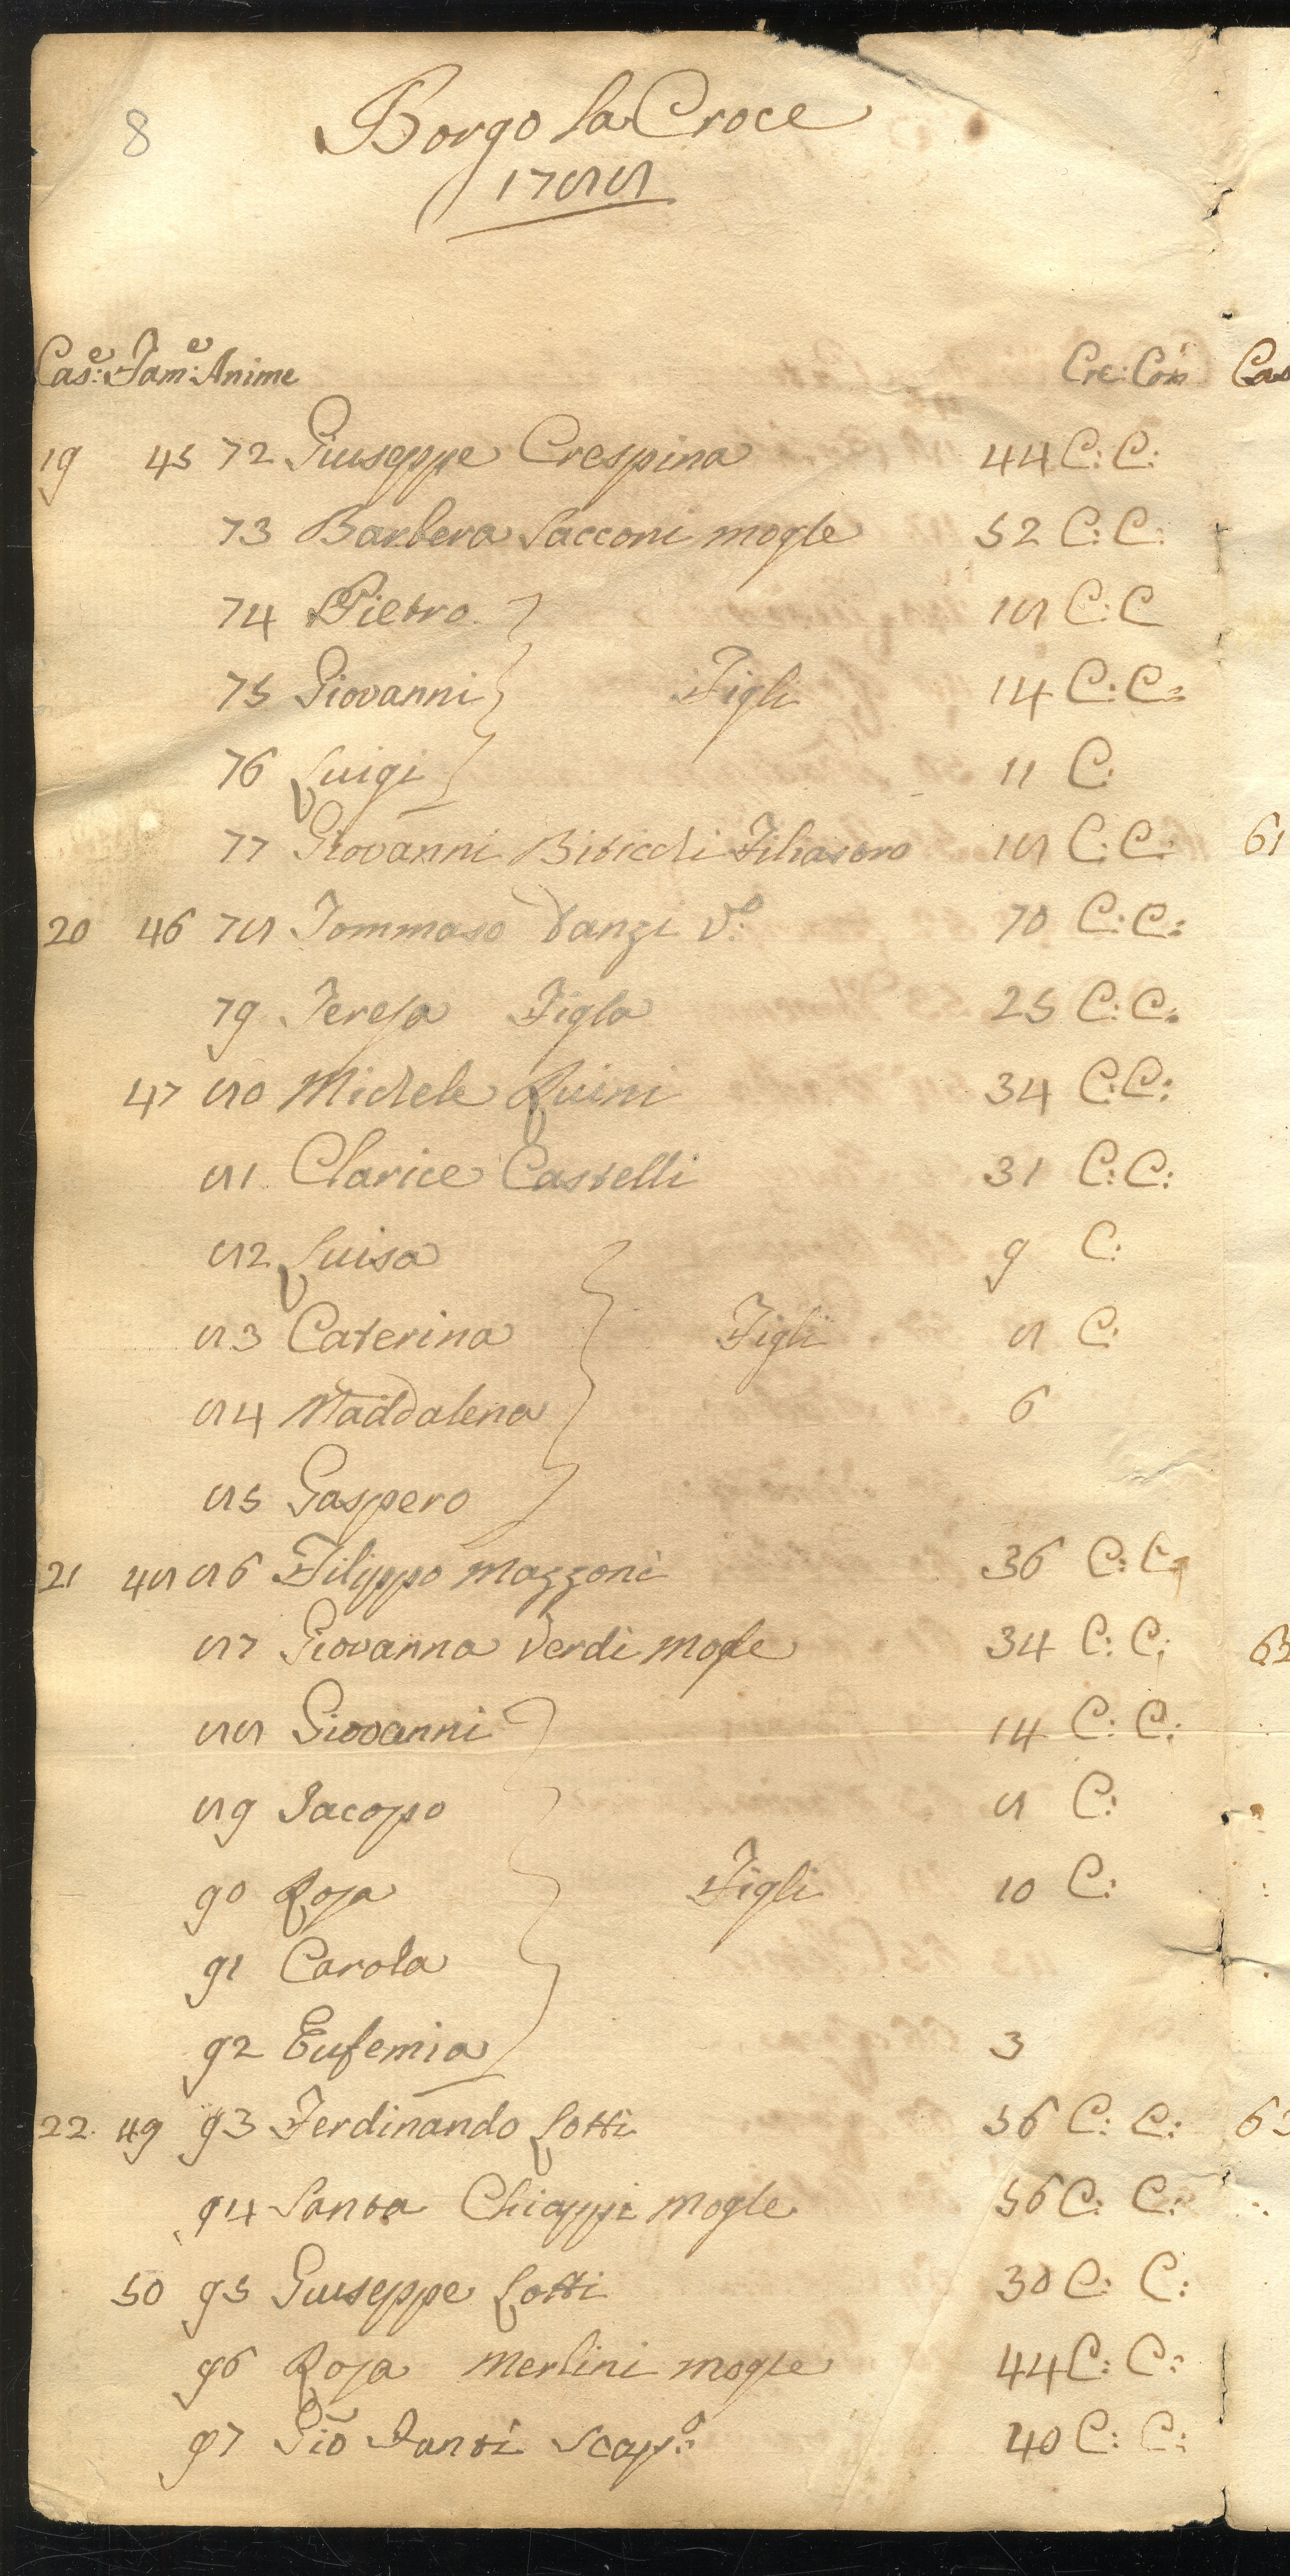 8
Borgo la Croce
1788
Cas:e Fam:e Anime Cre: Com Cas
19 45 72 Giuseppe Crespina 44 C: C:
73 Barbera Sacconi mogle 52 C: C:
74 Pietro 18 C: C
75 Giovanni Figli 14 C: C:
76 Luigi 11 C:
77 Giovanni 18 C: C: 61
20 46 78 Tommaso Danzi V:o 70 C: C:
79 Teresa Figla 25 C: C:
47 80 Michele Ruini 34 C: C:
81 Clarice Castelli 31 C: C:
82 Luisa 9 C:
83 Caterina Figli 8 C:
84 Maddalena 6
85 Gaspero
21 48 86 Filippo Mazzoni 36 C: C:
87 Giovanna Verdi Mogle 34 C: C:
88 Giovanni 14 C: C:
89 Jacopo 8 C:
90 Rosa Figli 10 C:
91 Carola
92 Eufemia 3
22 49 93 Ferdinando Lotti 56 C: C:
94 Santa Chiappi Mogle 56 C: C:
50 95 Giuseppe Lotti 30 C: C:
96 Rosa Merlini mogle 44 C: C:
97 Gio Santi Scap:o 40 C: C: